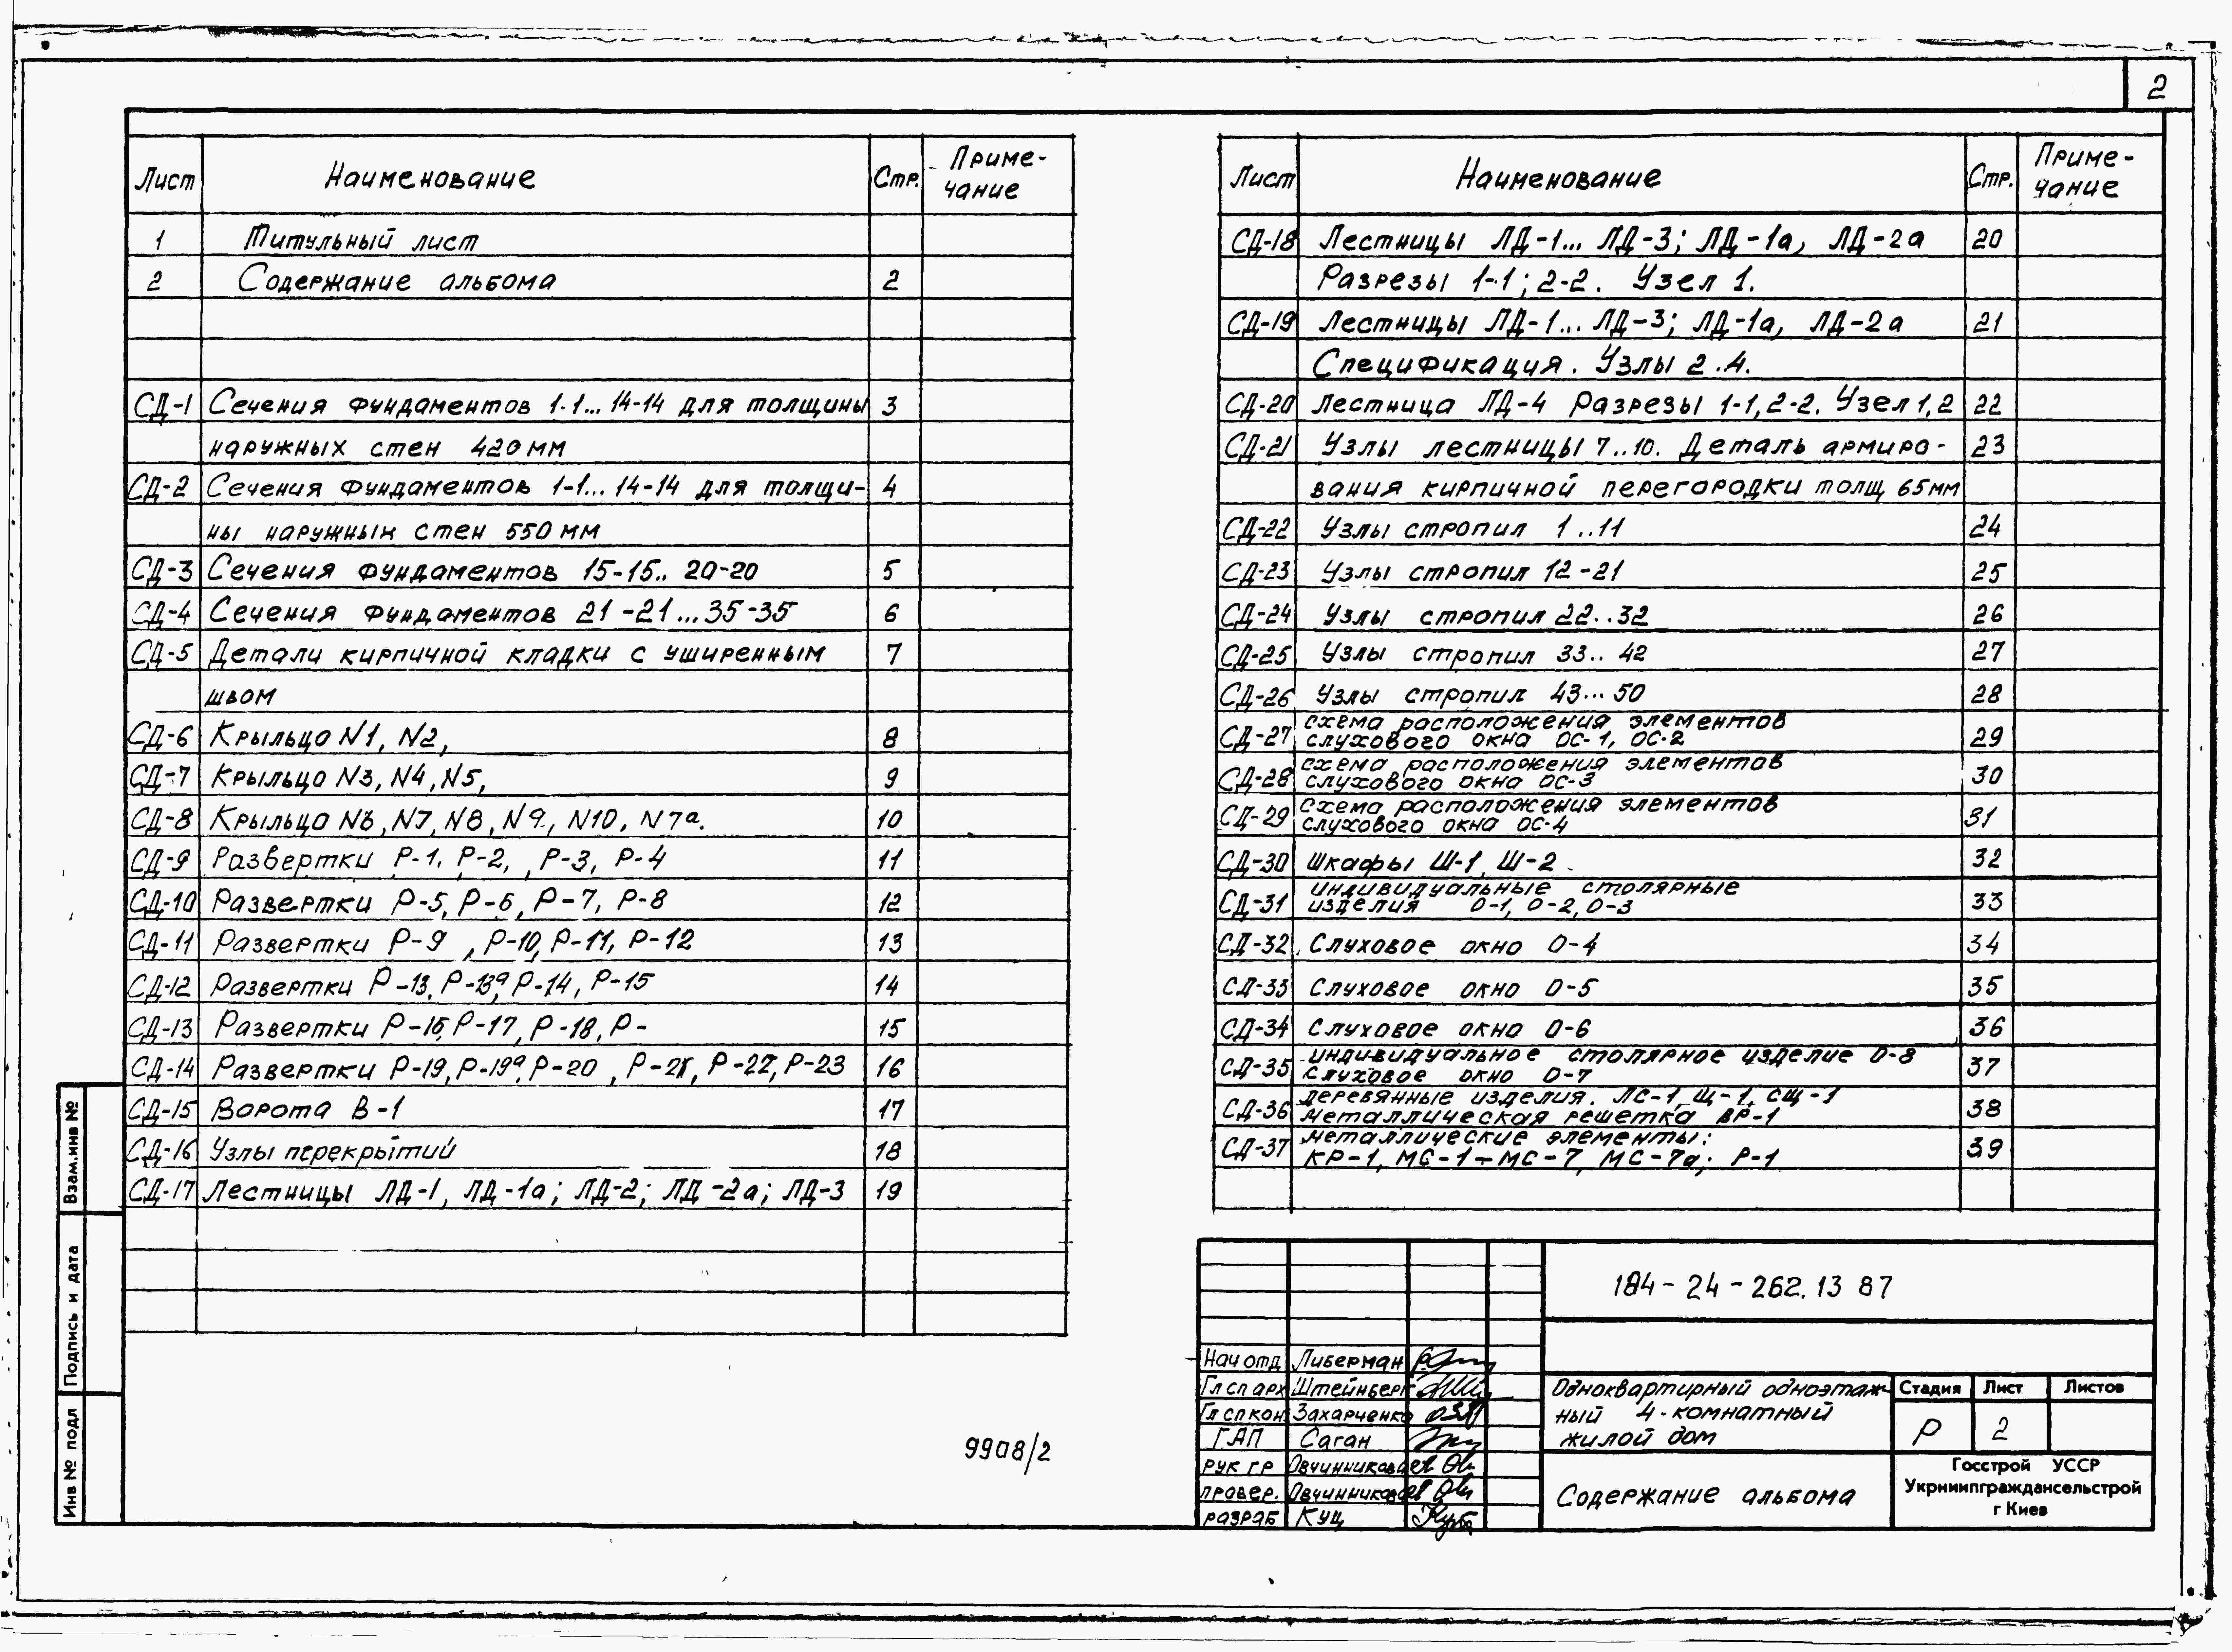 2
Лист Наименование Стр. Приме-
чание
1 Титульный лист
2 Содержание альбома 2
СД-1 Сечения фундаментов 1-1... 14-14 для толщины 3
наружных стен 420 мм
СД-2 Сечения фундаментов 1-1... 14-14 для толщи- 4
ны наружных стен 550 мм
СД-3 Сечения фундаментов 15-15.. 20-20 5
СД-4 Сечения фундаментов 21-21...35-35 6
СД-5 Детали кирпичной кладки с уширенным 7
швом
СД-6 Крыльцо N1, N2, 8
СД-7 Крыльцо N3, N4, N5, 9
СД-8 Крыльцо N6, N7, N8, N9, N10, N7а. 10
СД-9 Развертки Р-1, Р-2, Р-3, Р-4 11
СД-10 Развертки Р-5, Р-6, Р-7, Р-8 12
СД-11 Развертки Р-9 , Р-10, Р-11, Р-12 13
СД-12 Развертки Р-13, Р-13а, Р-14, Р-15 14
СД-13 Развертки Р-16, Р-17, Р-18, Р- 15
СД-14 Развертки Р-19, Р-19а, Р-20 , Р-21, Р-22, Р-23 16
СД-15 Ворота В-1 17
СД-16 Узлы перекрытий 18
СД-17 Лестницы ЛД-1, ЛД-1а; ЛД-2; ЛД-2а; ЛД-3 19
Лист Наименование Стр. Приме-
чание
СД-18 Лестницы ЛД-1... ЛД-3; ЛД-1а, ЛД-2а 20
Разрезы 1-1; 2-2. Узел 1.
СД-19 Лестницы ЛД-1... ЛД-3; ЛД-1а, ЛД-2а 21
Спецификация. Узлы 2..4.
СД-20 Лестница ЛД-4 Разрезы 1-1, 2-2. Узел 1, 2 22
СД-21 Узлы лестницы 7..10. Деталь армиро- 23
вания кирпичной перегородки толщ 65мм
СД-22 Узлы стропил 1..11 24
СД-23 Узлы стропил 12-21 25
СД-24 Узлы стропил 22..32 26
СД-25 Узлы стропил 33.. 42 27
СД-26 Узлы стропил 43...50 28
СД-27 схема расположения элементов
слухового окна ОС-1, ОС-2 29
СД-28 схема расположения элементов
слухового окна ОС-3 30
СД-29 схема расположения элементов
слухового окна ОС-4 31
СД-30 Шкафы Ш-1, Ш-2 32
СД-31 индивидуальные столярные
изделия О-1, О-2, О-3 33
СД-32 Слуховое окно О-4 34
СД-33 Слуховое окно О-5 35
СД-34 Слуховое окно О-6 36
СД-35 индивидуальное столярное изделие О-8
слуховое окно О-7 37
СД-36 деревянные изделия. ЛС-1, Щ-1, СЩ-1
металлическая решетка ВР-1 38
СД-37 металлические элементы:
КР-1, МС-1÷МС-7, МС-7а; Р-1 39
Взам.инв №
Подпись и дата
Инв № подл
9908/2
184-24-262.13 87
Нач отд Либерман
Гл сп арх Штейнберг
Гл сп кон. Захарченко
ГАП Саган
рук гр Овчинникова
провер. Овчинникова
разраб Кущ
Одноквартирный одноэтаж-
ный 4-комнатный
жилой дом
Стадия Лист Листов
Р 2
Содержание альбома
Госстрой УССР
Укрниипграждансельстрой
г Киев